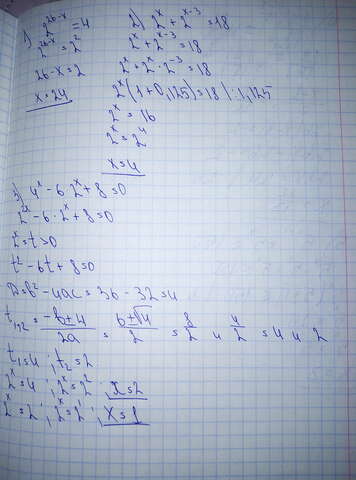 1) 2^(26-x) = 4
2^(26-x) = 2^2
26-x=2
x=24
2) 2^x + 2^(x-3) = 18
2^x + 2^(x-3) = 18
2^x + 2^x · 2^(-3) = 18
2^x (1+0,125) = 18 | : 1,125
2^x = 16
2^x = 2^4
x=4
3) 4^x - 6 · 2^x + 8 = 0
2^(2x) - 6 · 2^x + 8 = 0
2^x = t > 0
t^2 - 6t + 8 = 0
D = b^2 - 4ac = 36 - 32 = 4
t_1,2 = (-b ± 4)/2a = (6 ± √4)/2 = 8/2 и 4/2 = 4 и 2
t_1 = 4 ; t_2 = 2
2^x = 4 ; 2^x = 2^2 ; x = 2
2^x = 2 ; 2^x = 2^1 ; x = 1